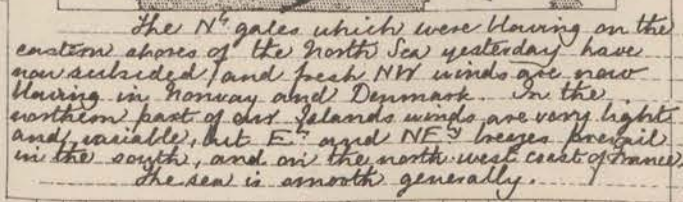 The Nly gales which were blowing on the
eastern shores of the North Sea yesterday have
now subsided, and fresh NW winds are now
blowing in Norway and Denmark. In the
northern part of our Islands winds are very light
and variable, but Ely and NEly breezes prevail
in the south, and on the north west coast of France,
The sea is smooth generally.